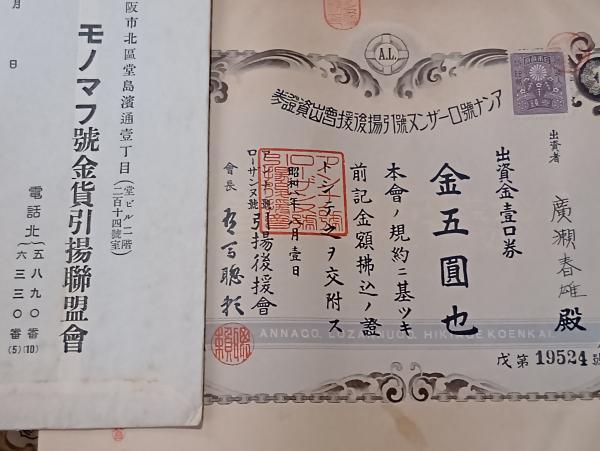 A.L.
アンナ號ローザンヌ號引揚後援會出資證券
出資者
廣瀬春雄殿
出資金壹口券
金五圓也
本會ノ規約ニ基ツキ
前記金額拂込ノ證
トシテ之ヲ交附ス
昭和年月壹日
アンナ號
ローザンヌ號引揚後援會
會長
ANNAGO. LOZANNUGO. HIKIAGE KOENKAI.
戊第19524號
阪市北區堂島濱通壹丁目(堂ビル二階二百十四號室)
モノマフ號金貨引揚聯盟會
電話北(五八九〇番(10)
六三三〇番(5)
月日